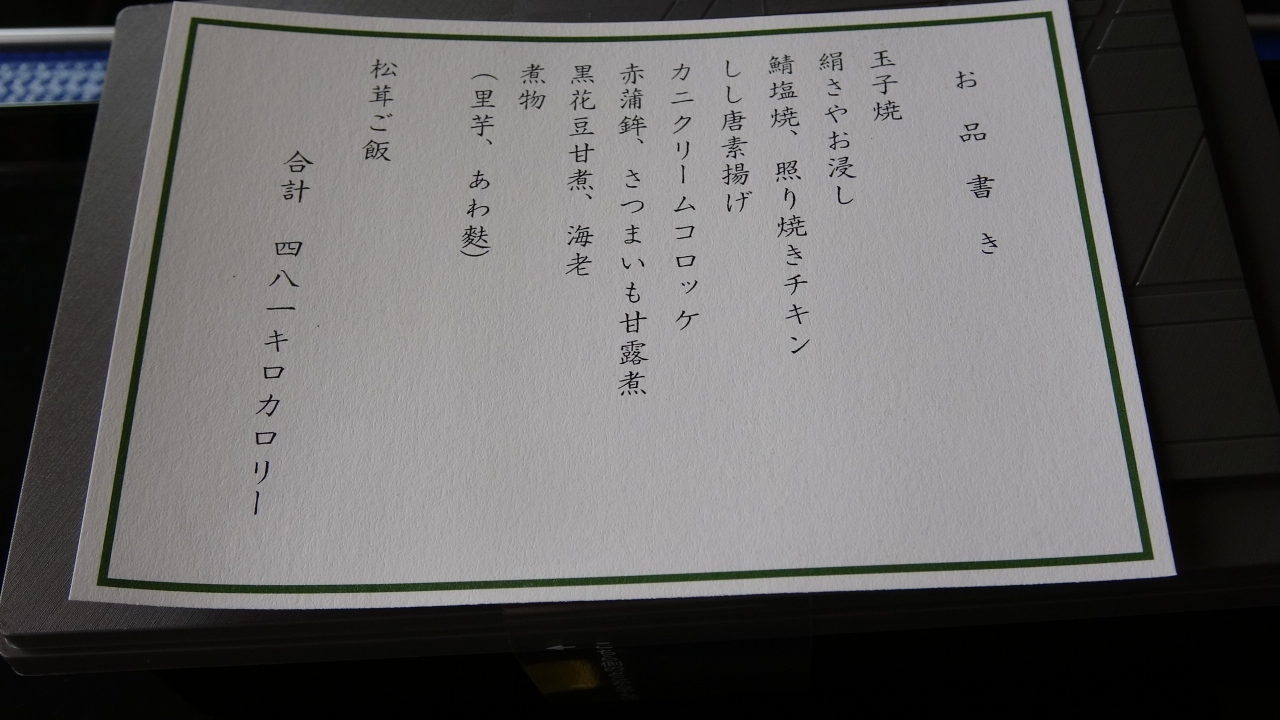 お品書き
玉子焼
絹さやお浸し
鯖塩焼、照り焼きチキン
しし唐素揚げ
カニクリームコロッケ
赤蒲鉾、さつまいも甘露煮
黒花豆甘煮、海老
煮物
（里芋、あわ麩）
松茸ご飯
合計 四八一キロカロリー